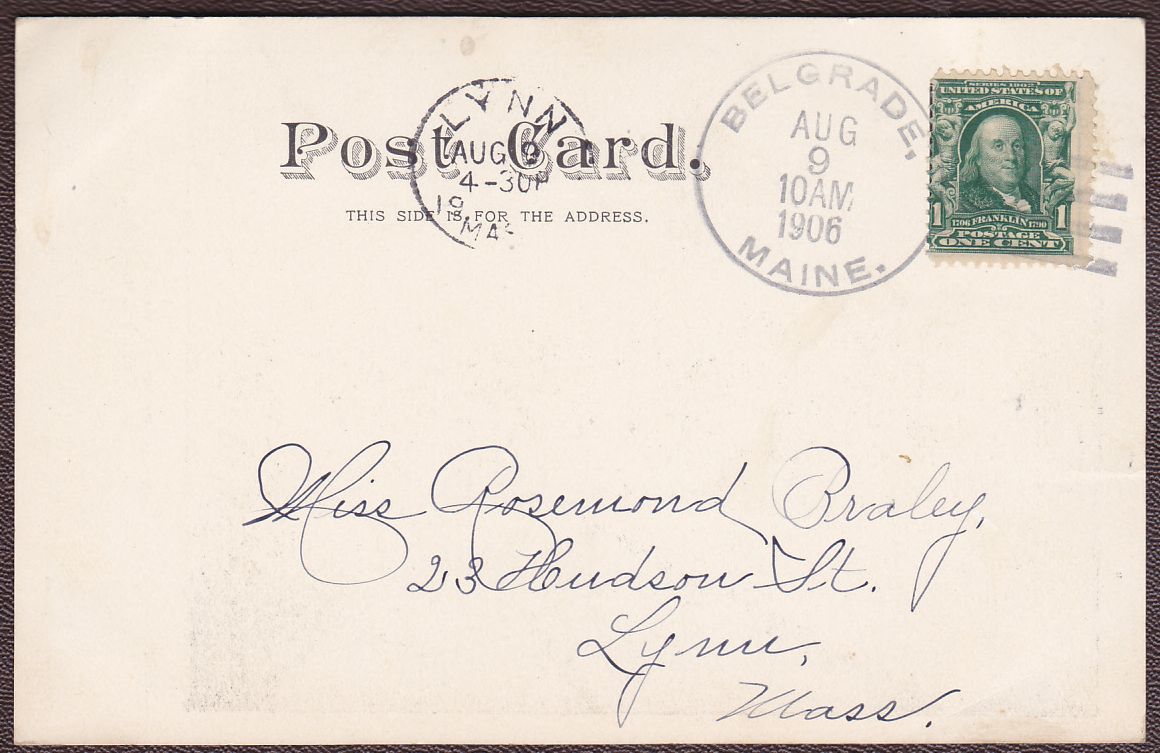 Post Card.
THIS SIDE IS FOR THE ADDRESS.
LYNN
AUG 9
4-30P
19
MAS
BELGRADE,
AUG
9
10AM
1906
MAINE.
SERIES 1902
UNITED STATES OF
AMERICA
1 1706 FRANKLIN 1790 1
POSTAGE
ONE CENT
Miss Rosemond Braley,
23 Hudson St.
Lynn,
Mass.